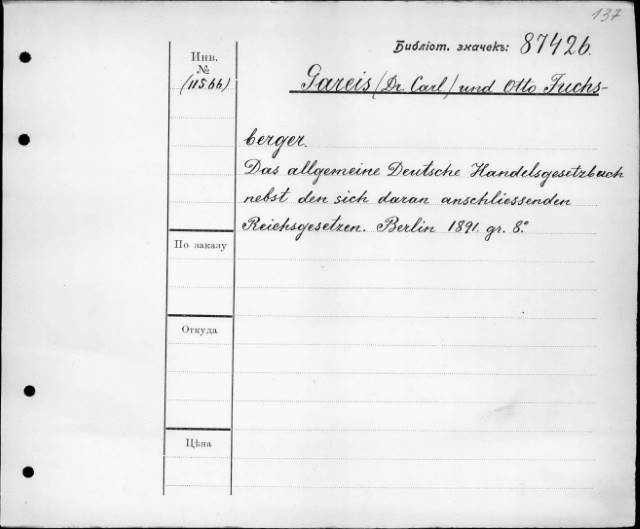 137
Библіот. значекъ: 87426.
Инв.
№
(11566)
Gareis (Dr. Carl) und Otto Fuchs-
berger.
Das allgemeine Deutsche Handelsgesetzbuch
nebst den sich daran anschliessenden
Reichsgesetzen. Berlin 1891. gr. 8.°
По заказу
Откуда
Цѣна